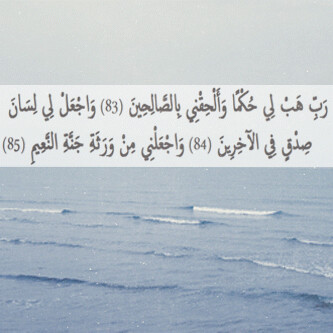 رَبِّ هَبْ لِي حُكْمًا وَأَلْحِقْنِي بِالصَّالِحِينَ (83) وَاجْعَلْ لِي لِسَانَ
صِدْقٍ فِي الْآخِرِينَ (84) وَاجْعَلْنِي مِنْ وَرَثَةِ جَنَّةِ النَّعِيمِ (85)